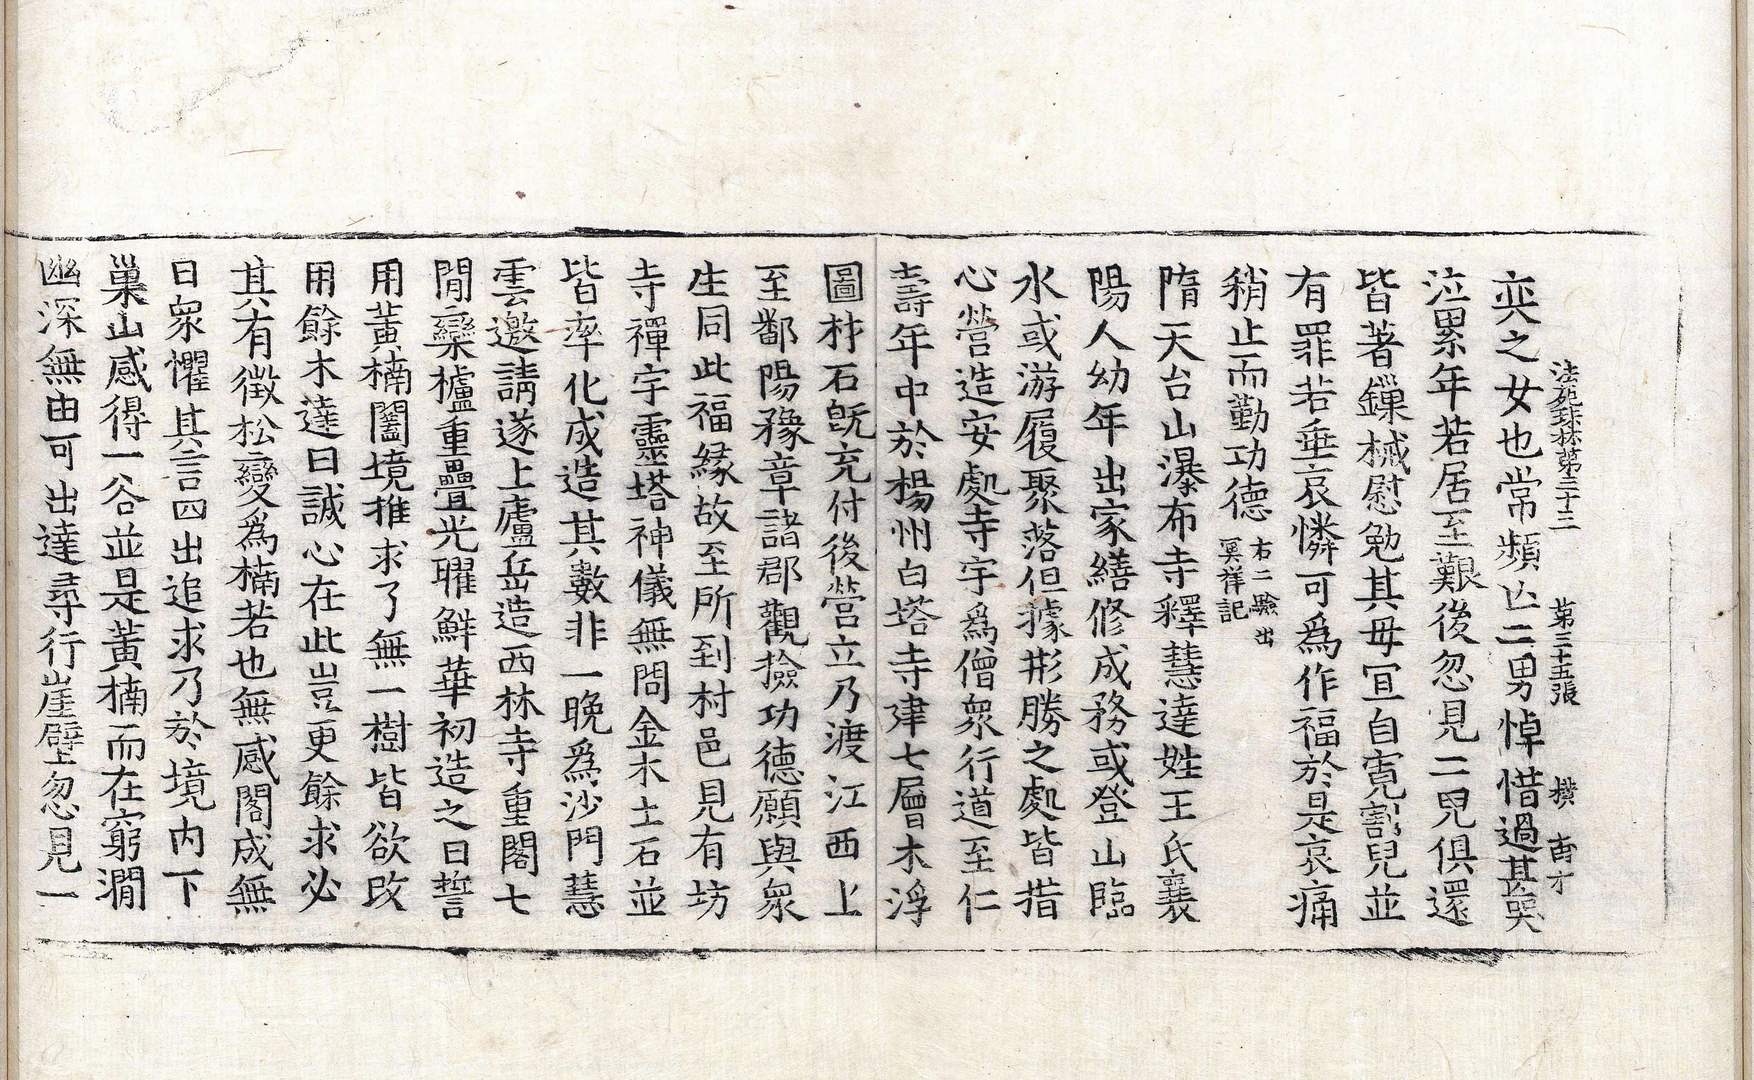 法苑珠林第三十三 第三十五張 橫 苗才
奕之女也常頻亡二男悼惜過甚哭
泣累年若居至艱後忽見二児俱還
皆著鏁械慰勉其母宜自寬割兒並
有罪若垂哀憐可爲作福於是哀痛
稍止而勤功德右二驗出冥祥記
隋天台山瀑布寺釋慧達姓王氏襄
陽人幼年出家繕修成務或登山臨
水或游履聚落但據形勝之處皆措
心營造安處寺宇爲僧衆行道至仁
壽年中於楊州白塔寺建七層木浮
圖材石旣充付後營立乃渡江西上
至鄱陽豫章諸郡觀撿功德願與衆
生同此福緣故至所到村邑見有坊
寺禪宇靈塔神儀無問金木土石並
皆率化成造其數非一晩爲沙門慧
雲邀請遂上廬岳造西林寺重閣七
閒欒櫨重疊光曜鮮華初造之日誓
用黃楠闔境推求了無一樹皆欲改
用餘木達曰誠心在此豈更餘求必
其有徵松變爲楠若也無感閣成無
日衆懼其言四出追求乃於境內下
巢山感得一谷並是黃楠而在窮澗
幽深無由可出達尋行崖壁忽見一